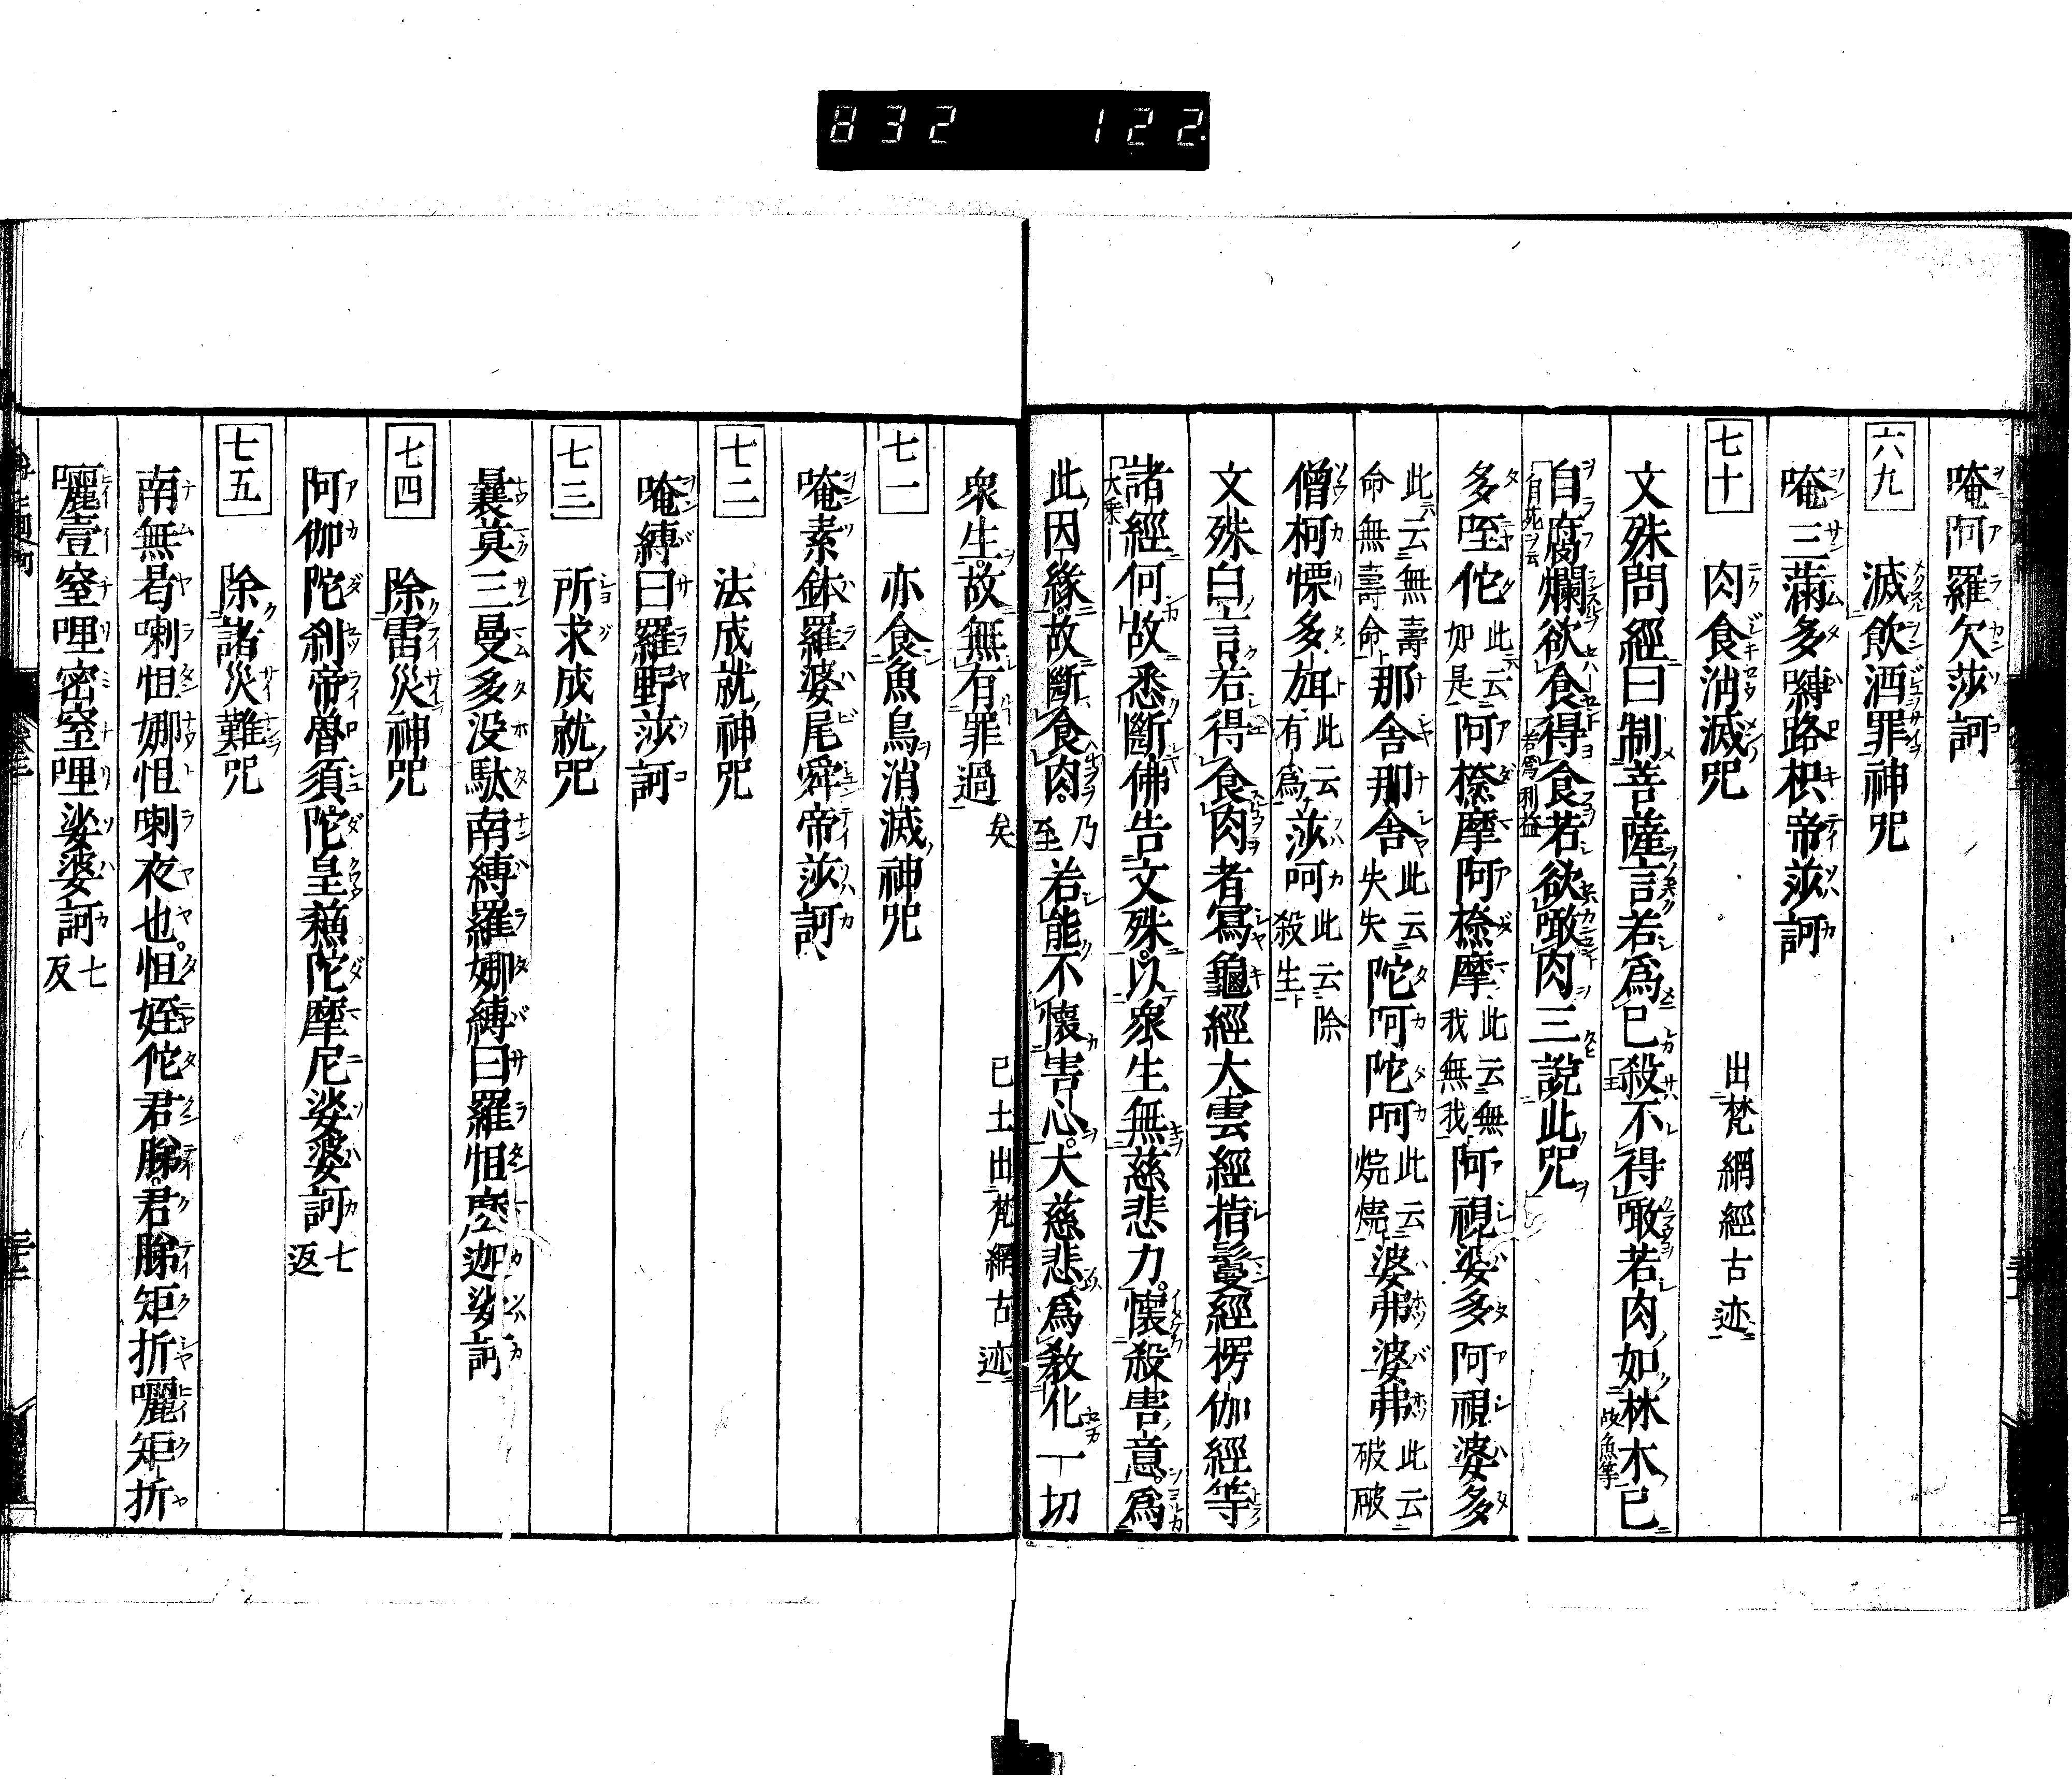 832 122
唵阿羅欠莎訶
六九 滅飲酒罪神咒
唵三滿多嚩路枳帝莎訶
七十 肉食消滅咒 出梵網經古迹
文殊問經曰制菩薩言若爲已殺不得噉若肉如林木已
自腐爛欲食得食若欲噉肉三說此咒
多咥佗此云如是阿㮈摩阿㮈摩此云無我無我阿視婆多阿視婆多
此云無壽命無壽命那舍那舍此云失失陀呵陀呵此云燒燒婆弗婆弗此云破破
僧柯慄多弭此云有爲莎呵此云除殺生
文殊白言若得食肉者寫龜經大雲經指鬘經楞伽經等
諸經何故悉斷佛告文殊以衆生無慈悲力懷殺害意爲
此因緣故斷食肉乃至若能不懷害心大慈悲爲教化一切
衆生故無有罪過矣 已上出梵網古迹
七一 亦食魚鳥消滅神咒
唵素鉢羅婆尾舜帝莎訶
七二 法成就神咒
唵縛曰羅野莎訶
七三 所求成就咒
曩莫三曼多没馱南縛羅娜縛曰羅怛麽迦娑訶
七四 除雷災神咒
阿伽陀刹帝魯須陀皇蘓陀摩尼娑婆訶七返
七五 除諸災難咒
南無曷喇怛娜怛喇夜也怛姪佗君睇君睇矩折囇矩折
囇壹窒哩密窒哩娑婆訶七反